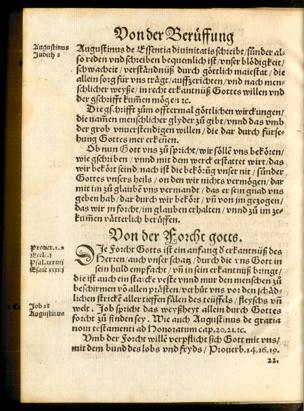 Von der Berüffung
Augustinus
Judith 8
Augustinus de Essentia diuinitatis schreibt / sünder al-
so reden vnd schreiben bequemlich ist / vnser blödigkeit /
schwacheit / verständnüß durch götlich maiestat / die
allein sorg für vns trägt / auffzerichten / vnd nach men-
schlicher weyse / in recht erkantnüß Gottes willen vnd
der gschrifft kumen mögen ꝛc.
Die gschrifft zům offtermal götlicher wirckungen /
die namen menschlicher glyder zů gibt / vnnd das vmb
der grob vnuerstendigen willen / die dar durch fürse-
hung Gottes mer erkennen.
Ob nun Gott vns zů spricht / wir söllē vns bekören /
wie gschriben / vnnd mit dem werck erstattet wirt / das
wir bekört seind / nach ist die bekörūg vnser nit / sünder
Gottes vnsers heils / on den wir nichts vermögen / dar-
mit im zů glaubē vns vermant / das er sein gnad vns
geben hab / dar durch wir bekört / vñ von jm gezogen /
das wir jn forcht / im glauben erhalten / vnnd zů im ze-
kumen vätterlich berüffen.
Von der Forcht gotts.
Prouer. 1. 9
Eccle. 1
Psal.
Esaie
Die Forcht Gotts ist ein anfang d' erkantnüß des
Herren / auch vnser schatz / durch die vns Gott in
sein huld empfacht / vñ in sein erkantnüß bringt /
die ist auch ein starcke veste vnnd mur den menschen zů
beschirmen vor allen prästen / verhüt vns vor den schäd-
lichen stricken aller tieffen fälen des teüffels / fleyschs vñ
Job 28
Augustinus
welt. Job spricht das weyßheyt allein durch Gottes
forcht zů finden sey. Wie auch Augustinus de gratia
noui testamenti ad Honoratum cap. 20. 21. ꝛc.
Vmb der Forcht willē verpflicht sich Gott mit vns /
mit dem bund des lobs vnd fryds / Prouerb. 14. 16. 19.
22.